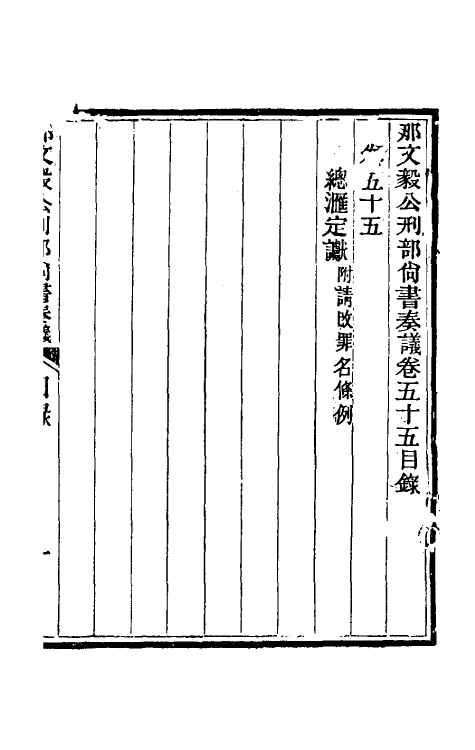 那文毅公刑部尙書奏議卷五十五目錄
卷五十五
總滙定讞附請改罪名條例
那文毅公刑部尙書奏議 目錄 一